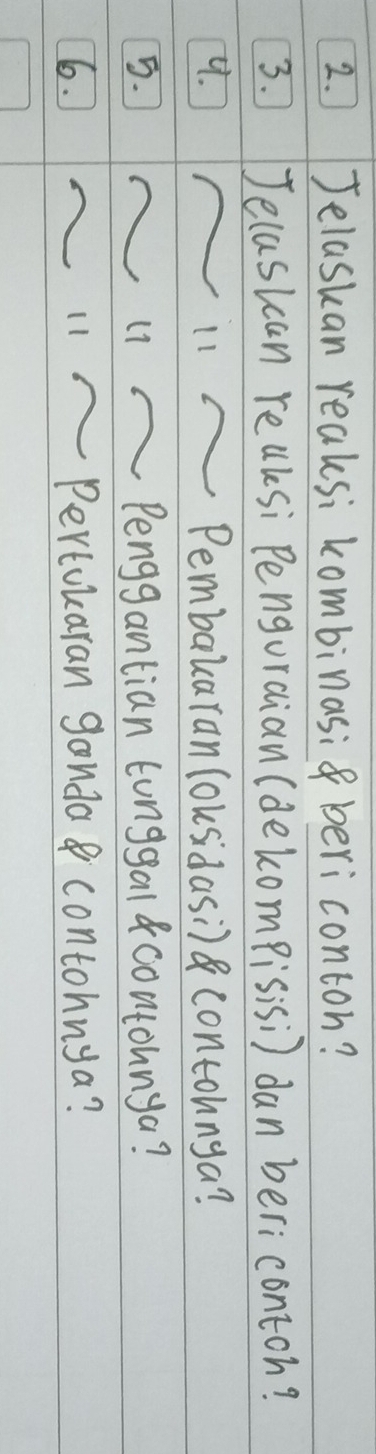 2. Jelaskan reaksi kombinasi & beri contoh?
3. Jelaskan reaksi Penguraian (dekompisisi) dan beri contoh?
4. ~ " ~ Pembakaran (oksidasi) & contohnya?
5. ~ " ~ Penggantian tunggal & contohnya?
6. ~ " ~ Pertukaran ganda & contohnya?